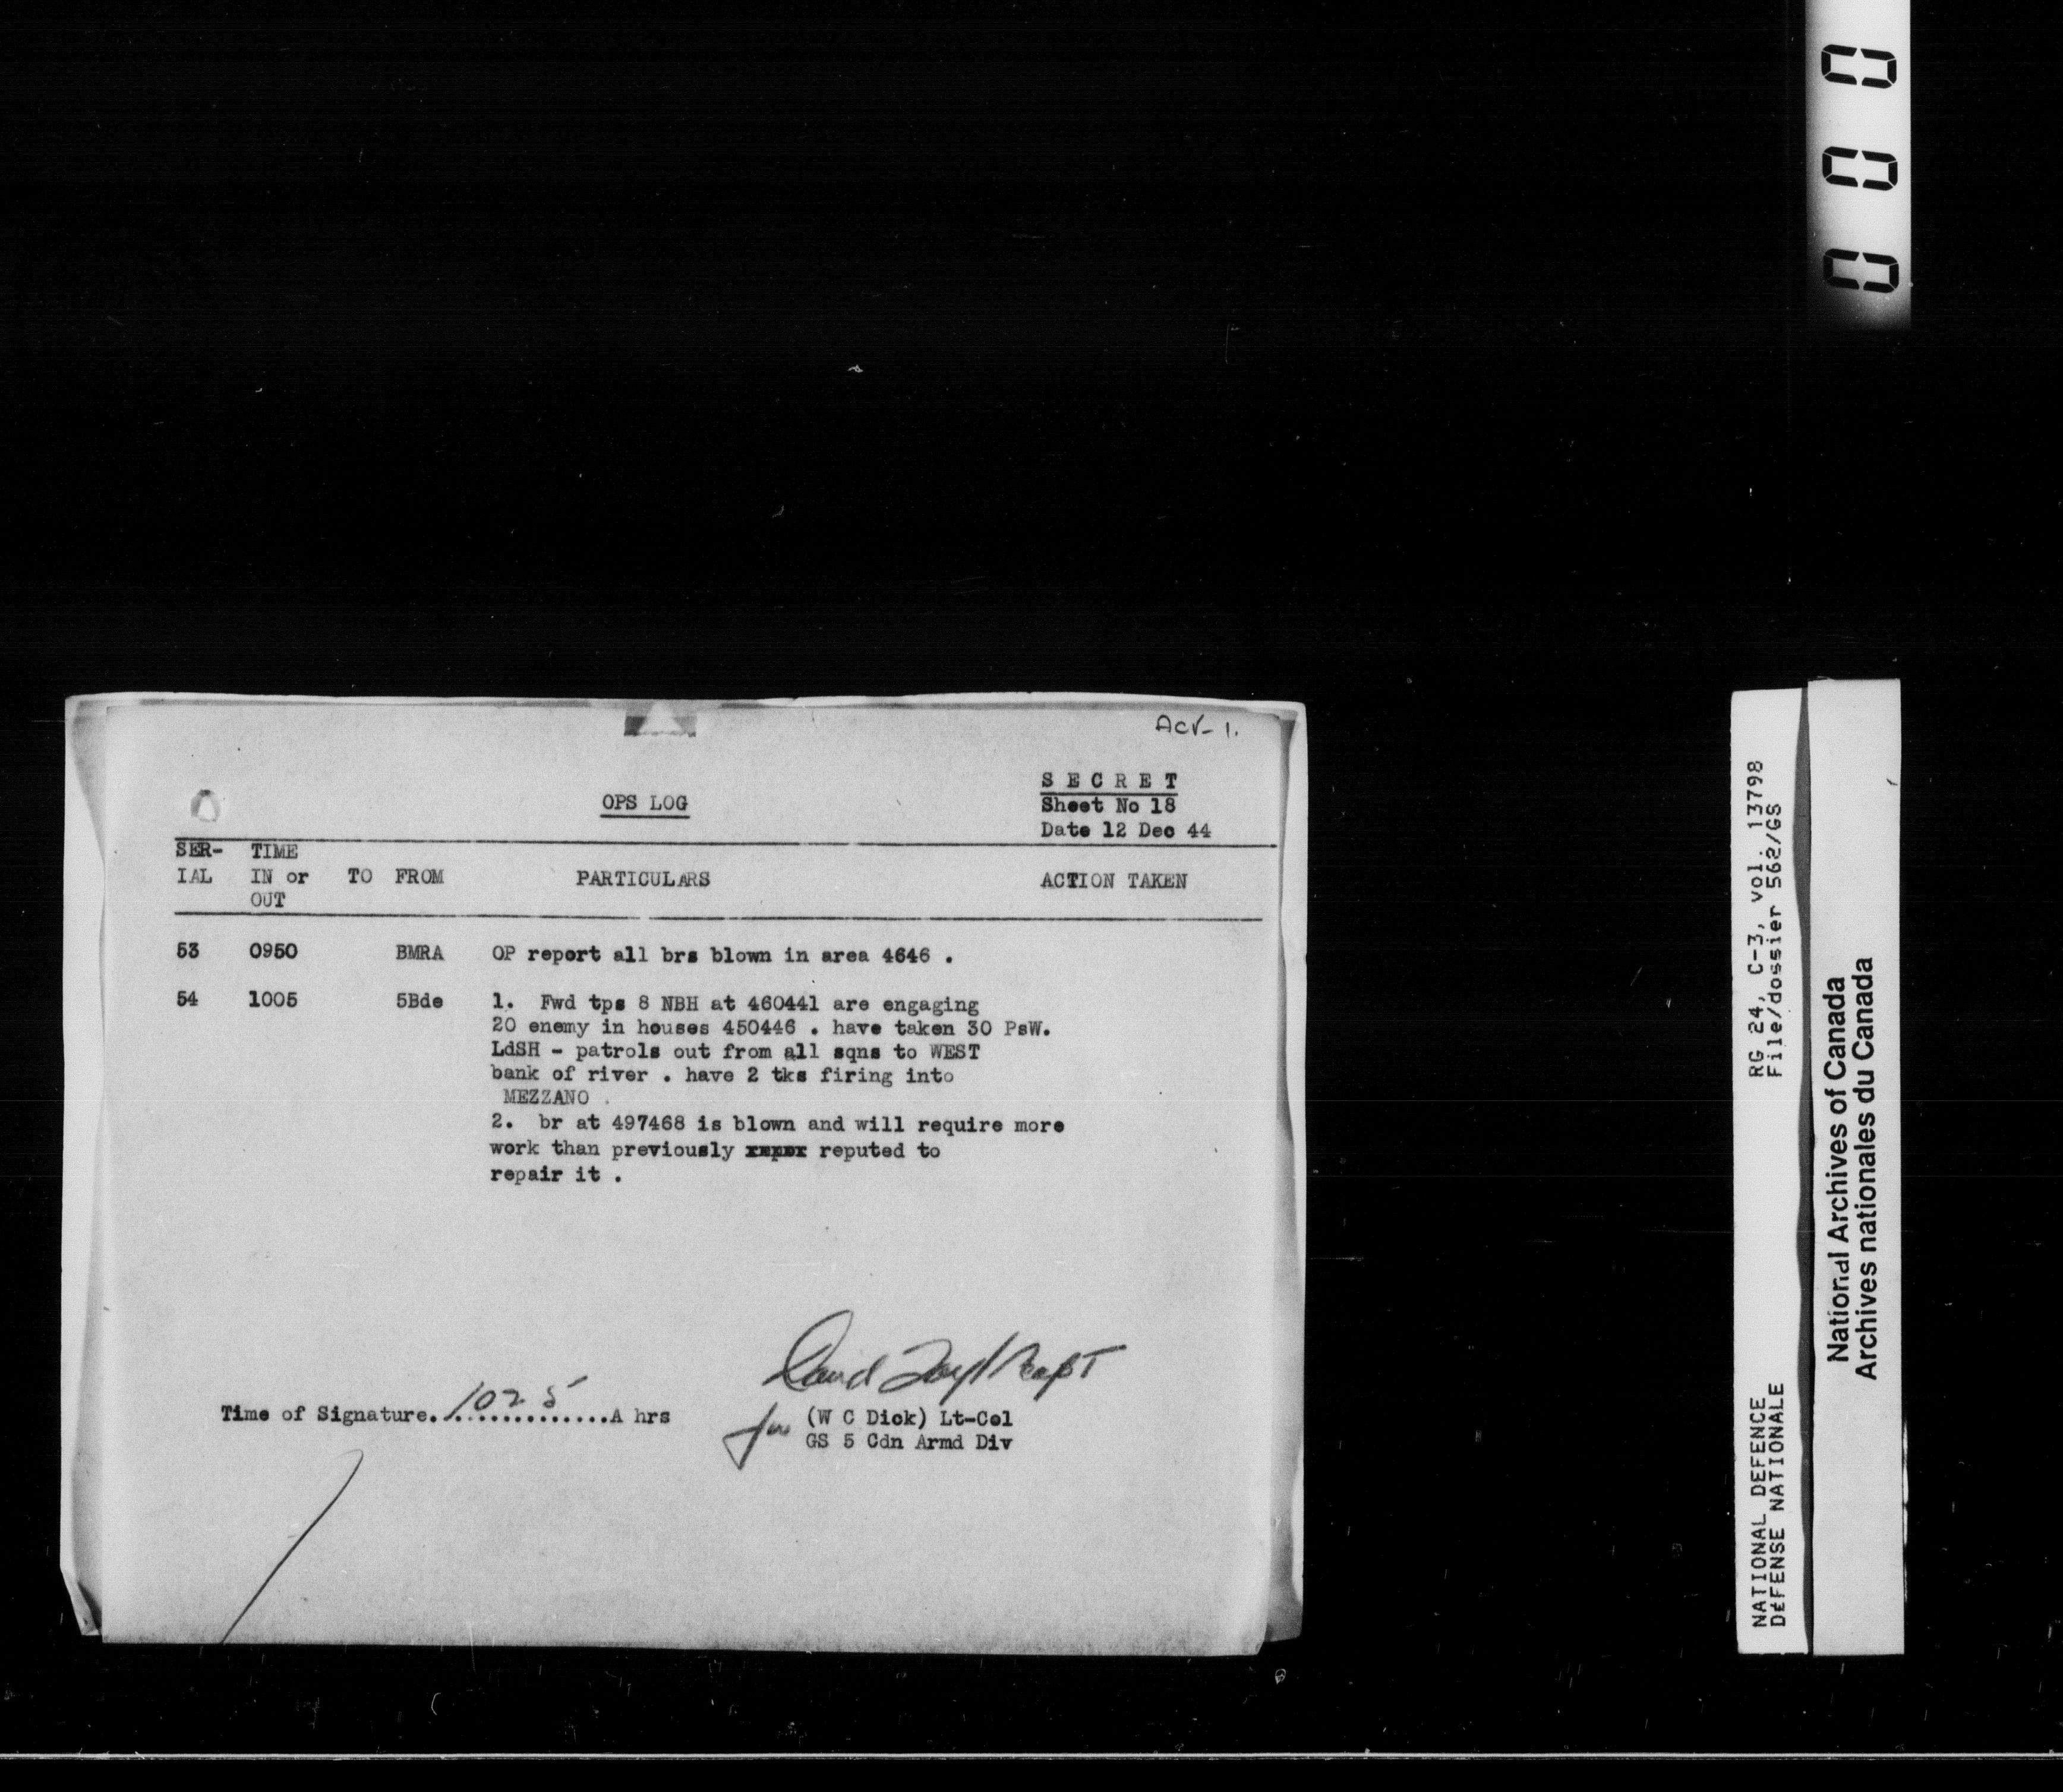 000
Acr- 1.
S E C R E T
OPS LOG
Sheet No 18
Date 12 Dec 44
SER- TIME
IAL IN or TO FROM PARTICULARS ACTION TAKEN
OUT
53 0950 BMRA OP report all brs blown in area 4646 .
54 1005 5Bde 1. Fwd tps 8 NBH at 460441 are engaging
20 enemy in houses 450446 . have taken 30 PsW.
LdSH - patrols out from all sqns to WEST
bank of river . have 2 tks firing into
MEZZANO .
2. br at 497468 is blown and will require more
work than previously reputed to
repair it .
Capt
Time of Signature. 1025 A hrs
for (W C Dick) Lt-Col
GS 5 Cdn Armd Div
RG 24, C-3, vol. 13798
File/dossier 562/GS
NATIONAL DEFENCE
DÉFENSE NATIONALE
National Archives of Canada
Archives nationales du Canada